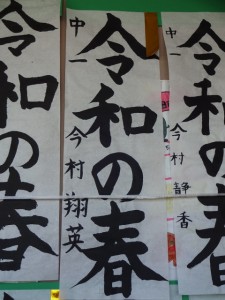 中一
令和の春
今村静香
中一
令和の春
今村翔英
令和の春